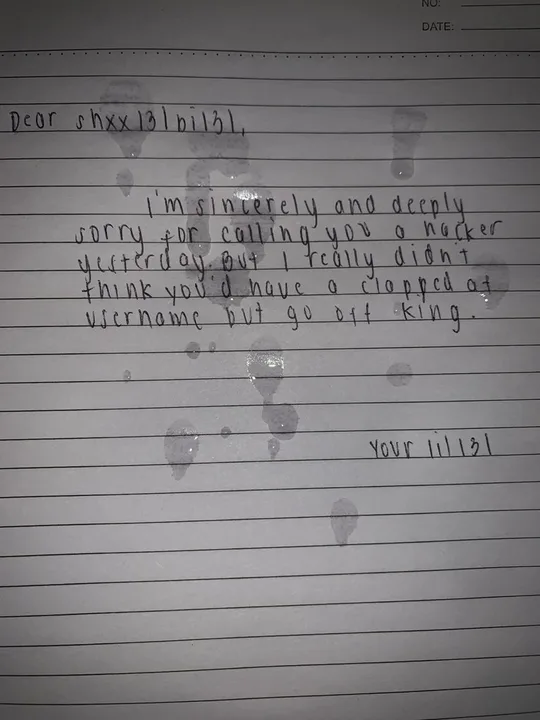 NO:
DATE:
Dear shxx131bi131,
I'm sincerely and deeply
sorry for calling you a hacker
yesterday. But I really didn't
think you'd have a clapped at
username but go off king.
your lil 131